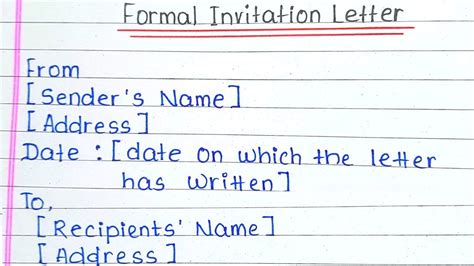 Formal Invitation Letter
From
[Sender's Name]
[Address]
Date : [date on which the letter
has written]
To,
[Recipients' Name]
[Address]